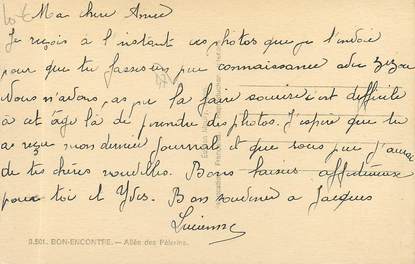 Ma chère Année
Je reçois à l'instant ces photos que je t'envoie
pour que tu fasses un peu connaissance avec Zizou
Nous n'avons pas pu la faire sourire c'est difficile
à cet âge là de prendre des photos. J'espère que tu
as reçu mon dernier journal et que sous peu j'aurai
de tes chères nouvelles. Bons baisers affectueux
pour toi et Yves. Bon souvenir à Jacques
Lucienne
B.501. BON-ENCONTRE. — Allée des Pèlerins.